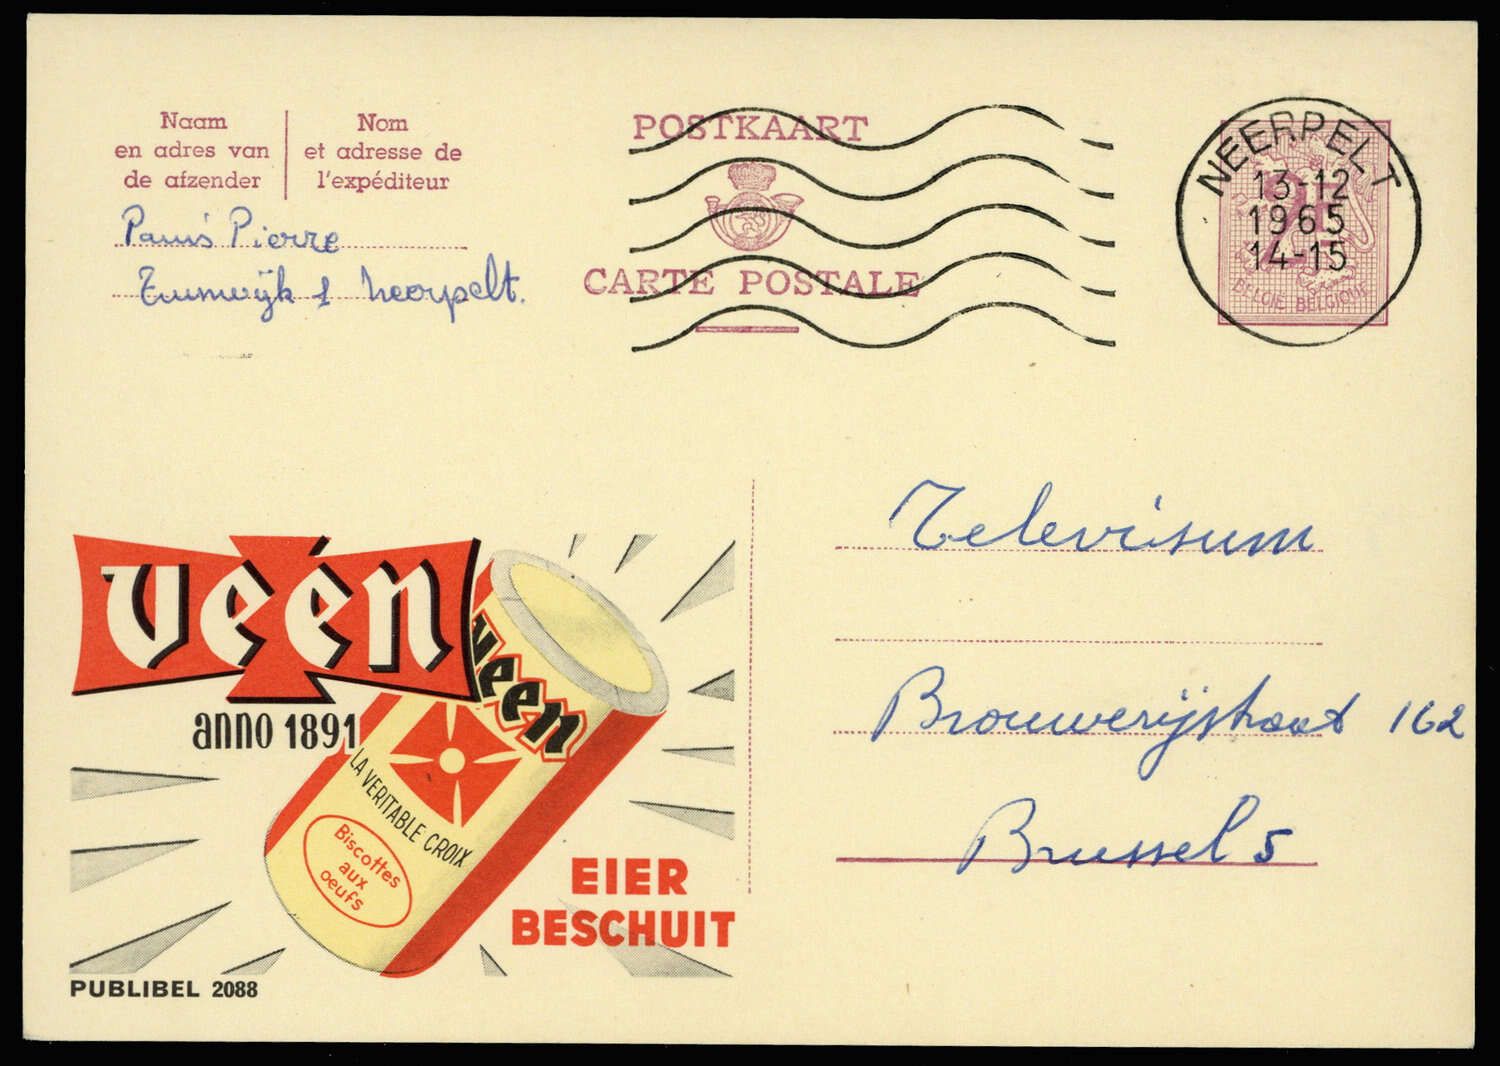 Naam
en adres van
de afzender
Nom
et adresse de
l'expéditeur
Panis Pierre
1 Neerpelt.
POSTKAART
CARTE POSTALE
NEERPELT
13-12
1965
14-15
2F
BELGIË BELGIQUE
Televisum
Brouwerijstraat 162
Brussel 5
véén
anno 1891
véén
LA VERITABLE CROIX
Biscottes
aux
oeufs
EIER
BESCHUIT
PUBLIBEL 2088